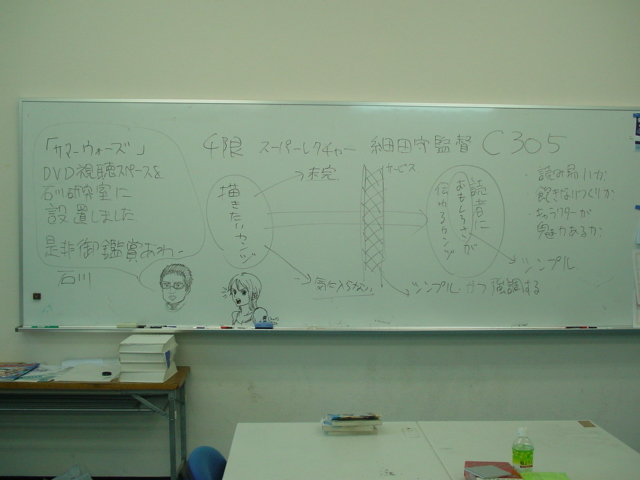 4限 スーパーレクチャー 細田守監督 C305
「サマーウォーズ」
DVD視聴スペースを
石川研究室に
設置しました
是非御鑑賞あれー
石川
描きたいカンジ
未完
サービス
読者に
おもしろさが
伝わるカンジ
シンプル
シンプルかつ強調する
読み易いか
飽きないつくりか
キャラクターが
魅力あるか